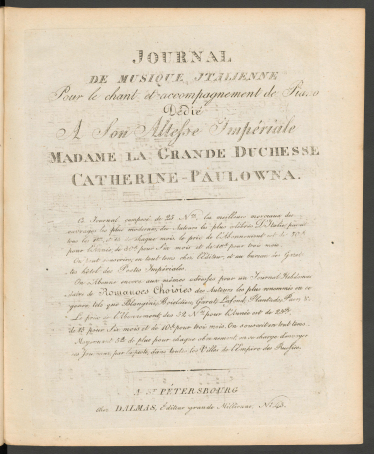 JOURNAL
DE MUSIQUE ITALIENNE
Pour le chant et accompagnement de Piano
Dédié
A Son Altesse Impériale
MADAME LA GRANDE DUCHESSE
CATHERINE-PAULOWNA.
Ce Journal composé de 24 Nos. les meilleurs morceaux des
ouvrages les plus modernes des Auteurs les plus célèbres D'Italie, paroit
tous les de chaque mois le prix de l'Abonnement est de
pour l'année, de pour Six mois et de pour trois mois.
On peut souscrire en tout tems chez l'éditeur, et au bureau des Gazet-
tes hôtel des Postes Impériales.
On s'abonne encore aux mêmes adresses pour un Journal Hebdoma-
daire de Romances Choisies des Auteurs les plus renommés en ce
genre, tels que Blangini, Boieldieu, Garat, Lafont, Plantade, Paer &c.
Le prix de l'Abonnement des 52 Nos. pour l'Année est de
de pour Six mois et de pour trois mois. On souscrit en tout tems.
Moyennant de plus pour chaque abonnement on se charge d'envoyer
par la poste dans toutes les Villes de l'Empire de Russie.
A St. PÉTERSBOURG
chez DALMAS, Éditeur grande Millionne, No.